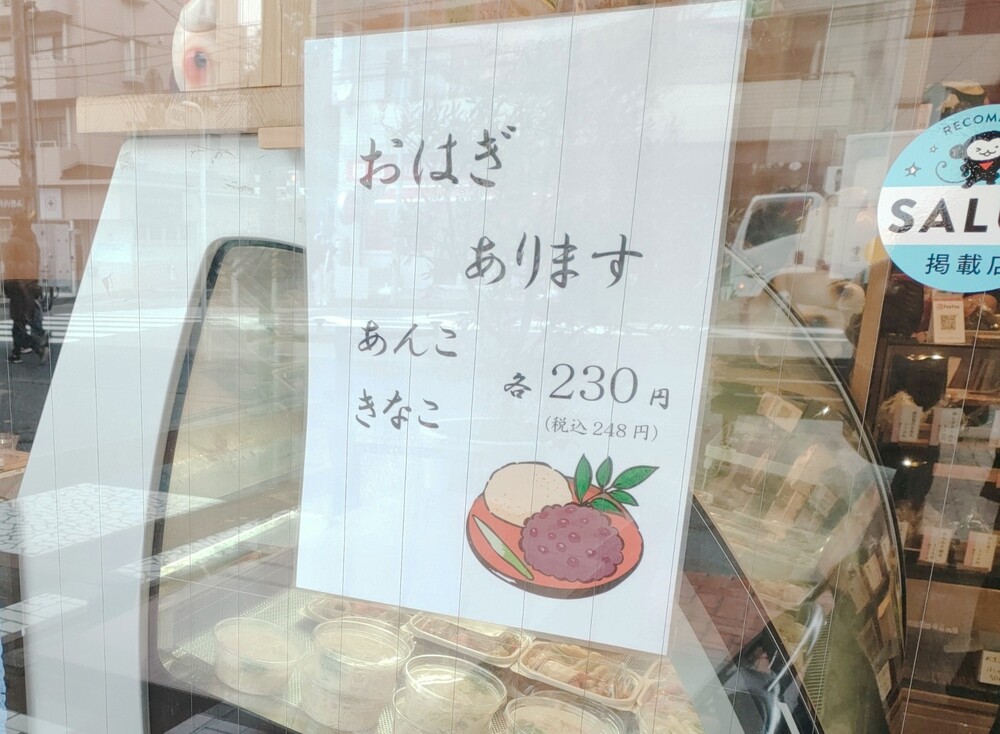 おはぎ
あります
あんこ
きなこ
各 230 円
(税込 248 円)
掲載店
PayPay